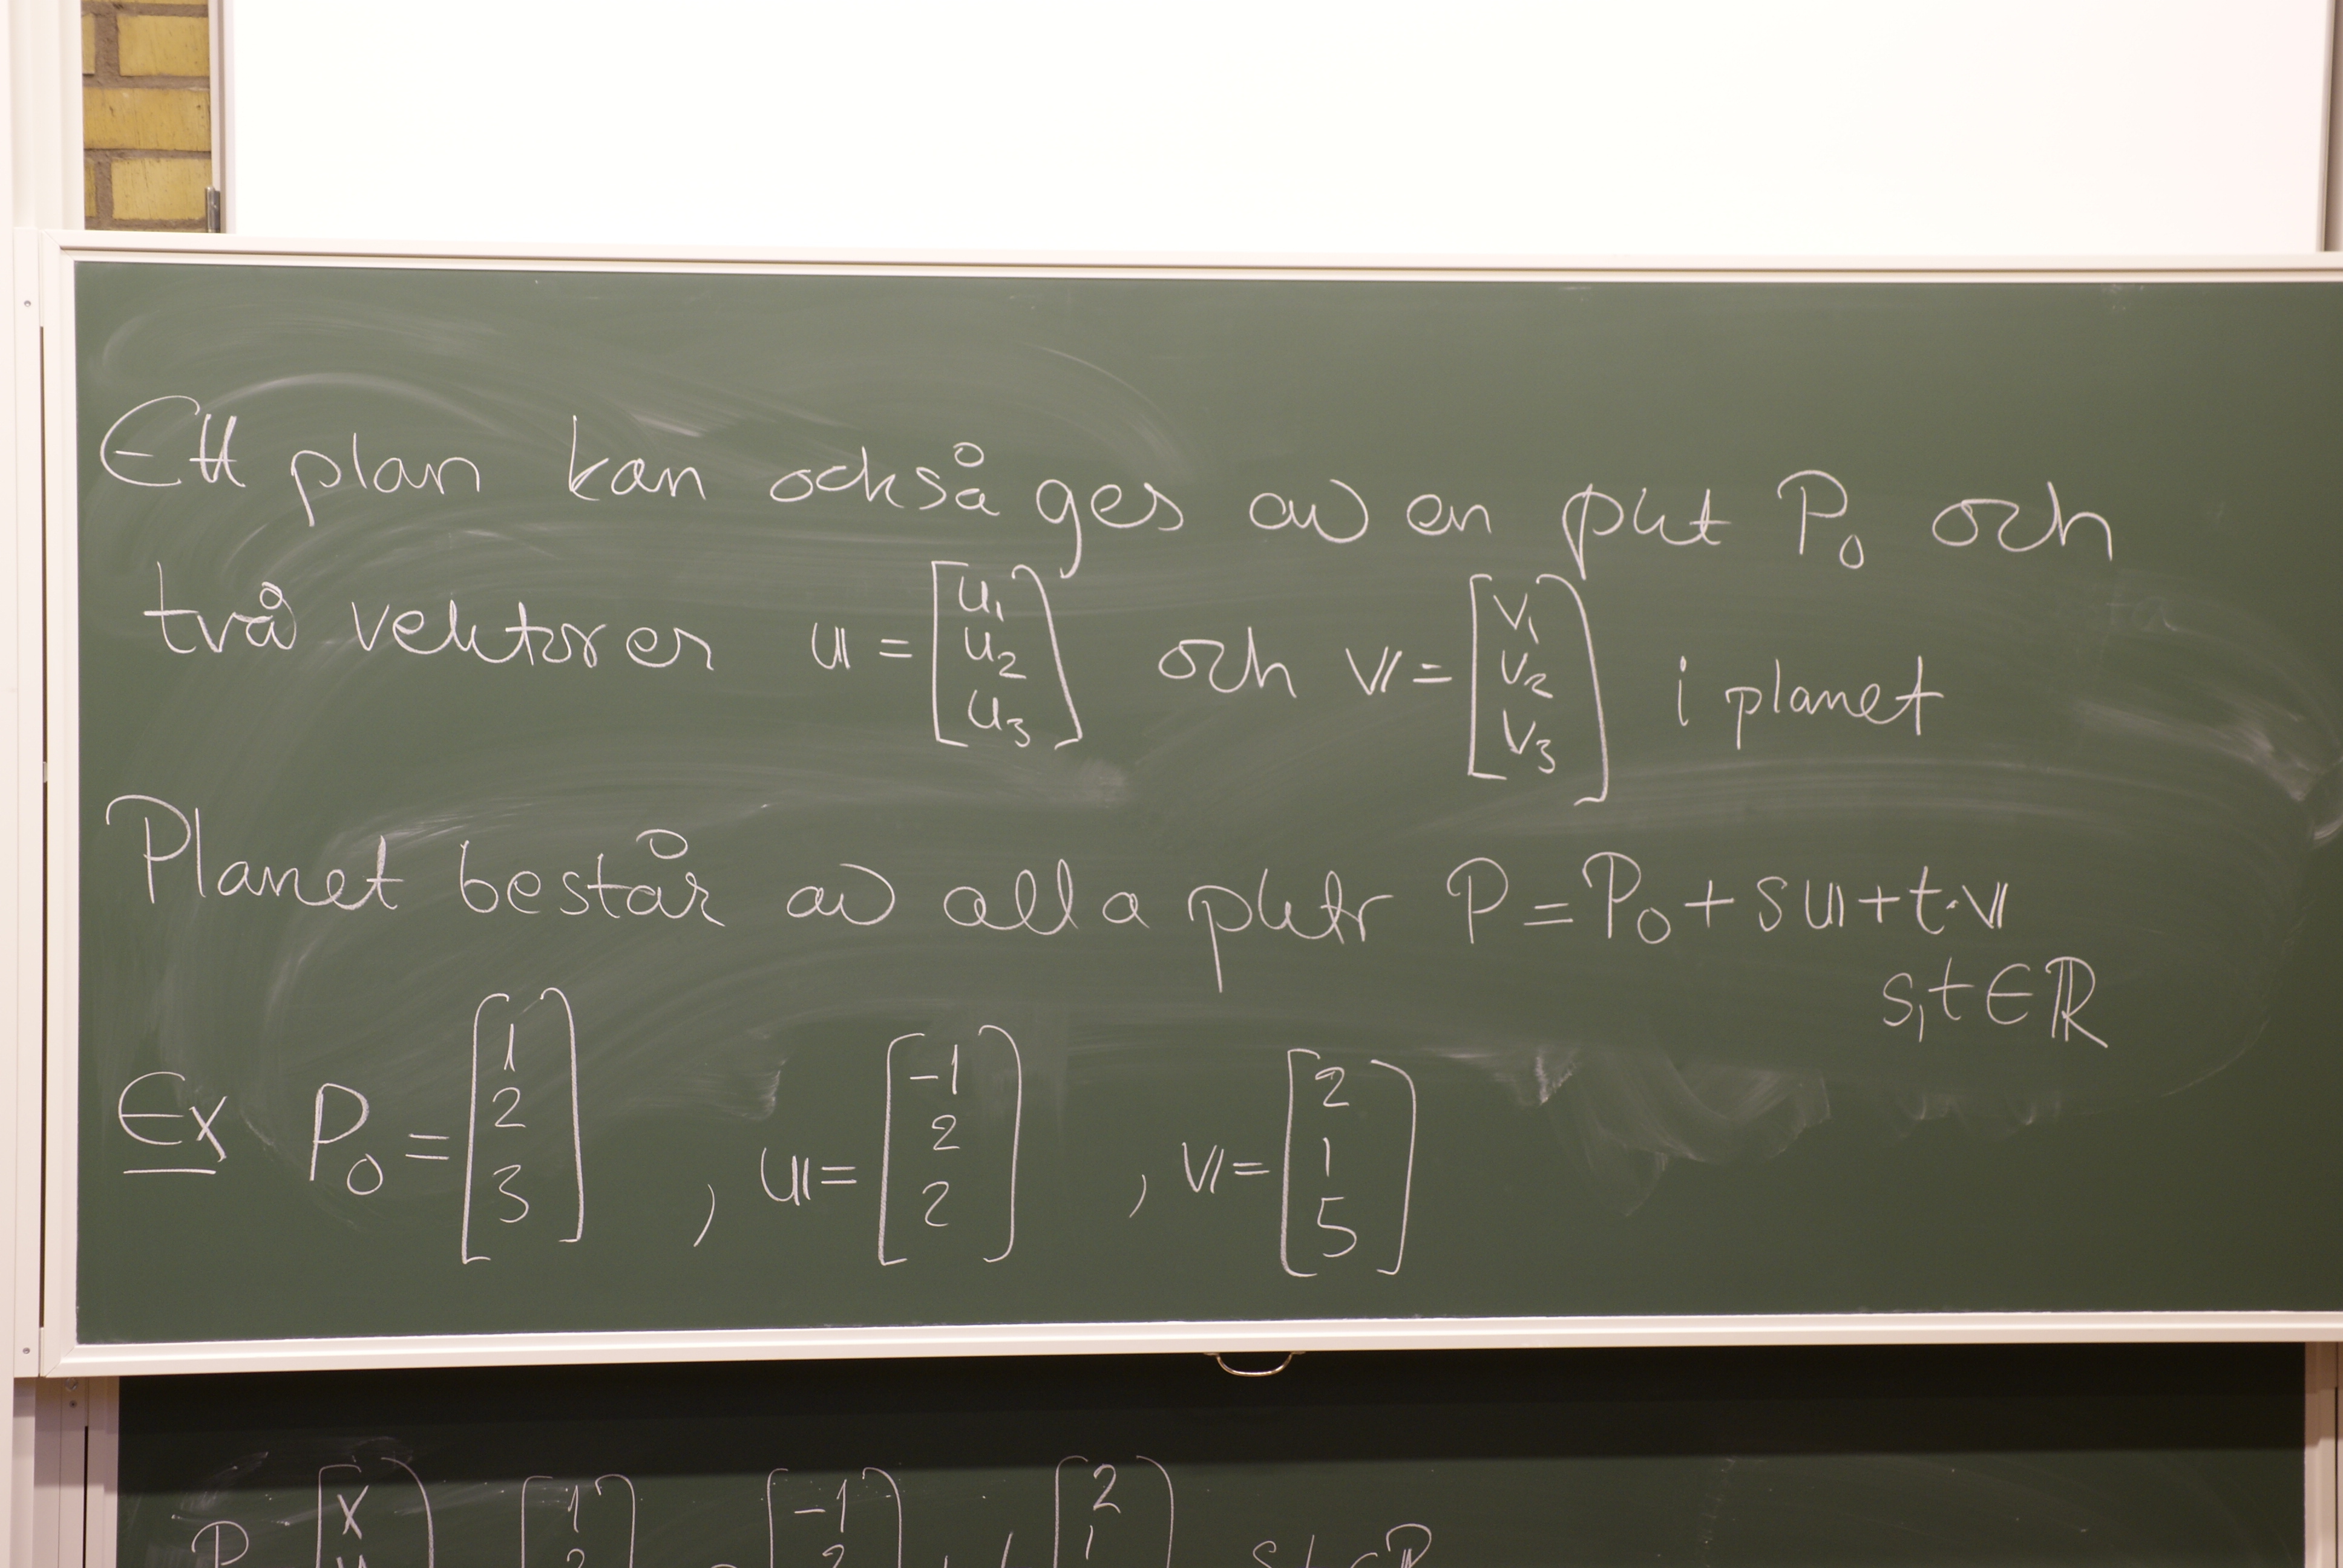 Ett plan kan också ges av en pkt P₀ och
två vektorer u = [u₁ u₂ u₃] och v = [v₁ v₂ v₃] i planet
Planet består av alla pktr P = P₀ + su + t·v
s,t ∈ ℝ
Ex P₀ = [1 2 3] , u = [-1 2 2] , v = [2 1 5]
P [x [1 2 [-1 2 [2 1 s,t ∈ ℝ